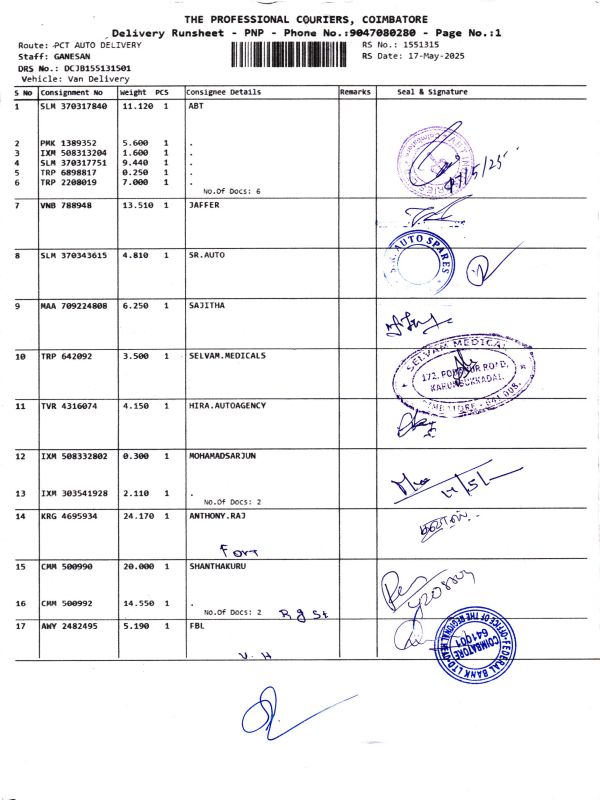 THE PROFESSIONAL COURIERS, COIMBATORE
Delivery Runsheet - PNP - Phone No.:9047080280 - Page No.:1
Route: PCT AUTO DELIVERY RS No.: 1551315
Staff: GANESAN RS Date: 17-May-2025
DRS No.: DCJB155131501
Vehicle: Van Delivery
S No Consignment No Weight PCS Consignee Details Remarks Seal & Signature
1 SLM 370317840 11.120 1 ABT
2 PMK 1389352 5.600 1 .
3 IXM 508313204 1.600 1 .
4 SLM 370317751 9.440 1 .
5 TRP 6898817 0.250 1 .
6 TRP 2208019 7.000 1 .
No.Of Docs: 6
17/5/25
7 VNB 788948 13.510 1 JAFFER
8 SLM 370343615 4.810 1 SR.AUTO
S.R. AUTO SPARES
9 MAA 709224808 6.250 1 SAJITHA
10 TRP 642092 3.500 1 SELVAM.MEDICALS
SELVAM MEDICAL
172, ROAD,
KARUMBUKKADAI,
COIMBATORE - 641 008.
11 TVR 4316074 4.150 1 HIRA.AUTOAGENCY
12 IXM 508332802 0.300 1 MOHAMADSARJUN
13 IXM 303541928 2.110 1 .
No.Of Docs: 2
14 KRG 4695934 24.170 1 ANTHONY.RAJ
Fort
15 CMM 500990 20.000 1 SHANTHAKURU
16 CMM 500992 14.550 1 .
No.Of Docs: 2 R g St
17 AWY 2482495 5.190 1 FBL
V. H
FEDERAL BANK LTD
OFFICE OF THE REGIONAL HEAD
COIMBATORE
641001